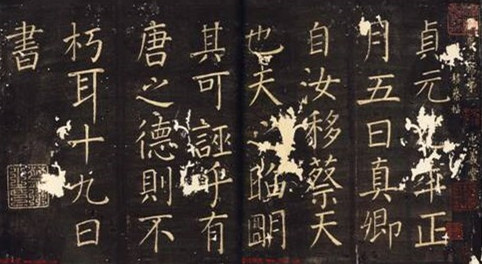 貞元年正
月五日真卿
自汝移蔡天
也天之昭明
其可誣乎有
唐之德則不
朽耳十九日
書